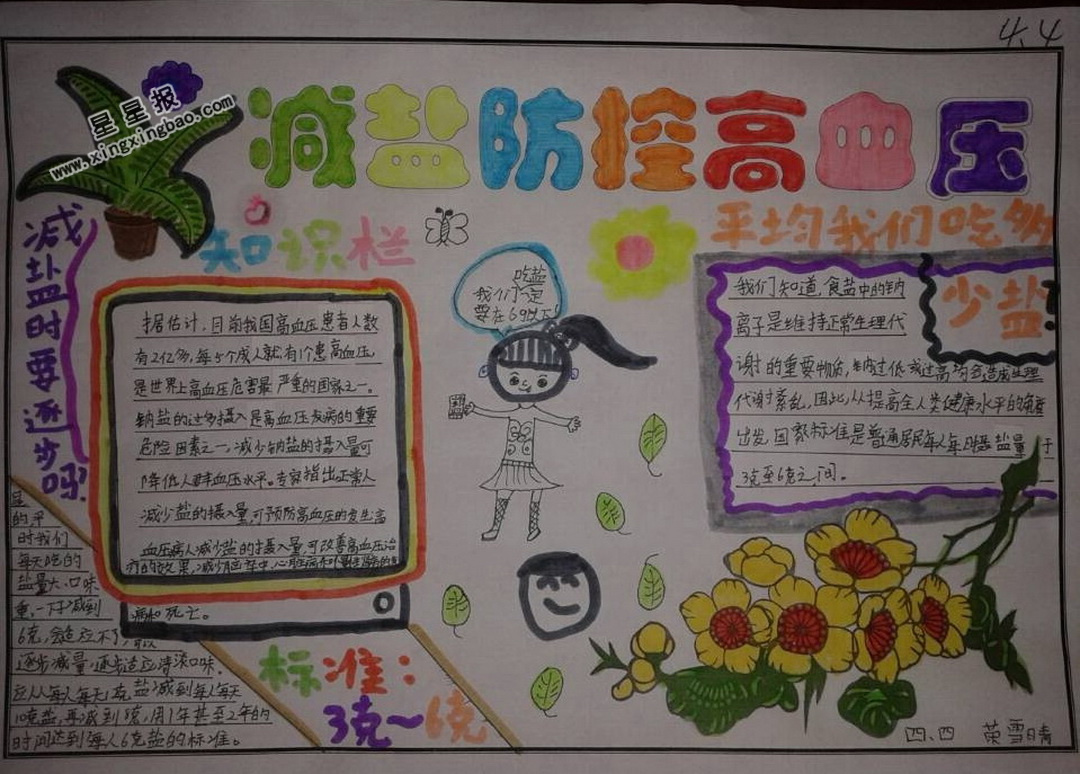 4.4
星星报
www.xingxingbao.com
减盐防控高血压
减盐时要逐步吗?
知识栏
据估计,目前我国高血压患者人数
有2亿多,每5个成人就有1个患高血压,
是世界上高血压危害最严重的国家之一。
钠盐的过多摄入是高血压发病的重要
危险因素之一,减少钠盐的摄入量可
降低人群血压水平。专家指出正常人
减少盐的摄入量,可预防高血压的发生高
血压病人减少盐的摄入量,可改善高血压治
疗的效果,减少脑卒中,心脏病和
病和死亡。
吃盐
我们一定
要在6g以下!
平均我们吃多
少盐!
我们知道,食盐中的钠
离子是维持正常生理代
谢的重要物质,钠过低或过高均会造成生理
代谢紊乱,因此,从提高全人类健康水平的角度
出发,国家标准是普通居民每人每日摄盐量 于
3克至6克之间。
的平
时我们
每天吃的
盐量大,口味
重,一下减到
6克,会适应不了
逐步减量,逐步适应,清淡口味,
应从每人每天 盐减到每人每天
10克盐,再减到 克,用1年甚至2年的
时间达到每人6克盐的标准。
标准:
3克~6克
四、四 荣雪晴